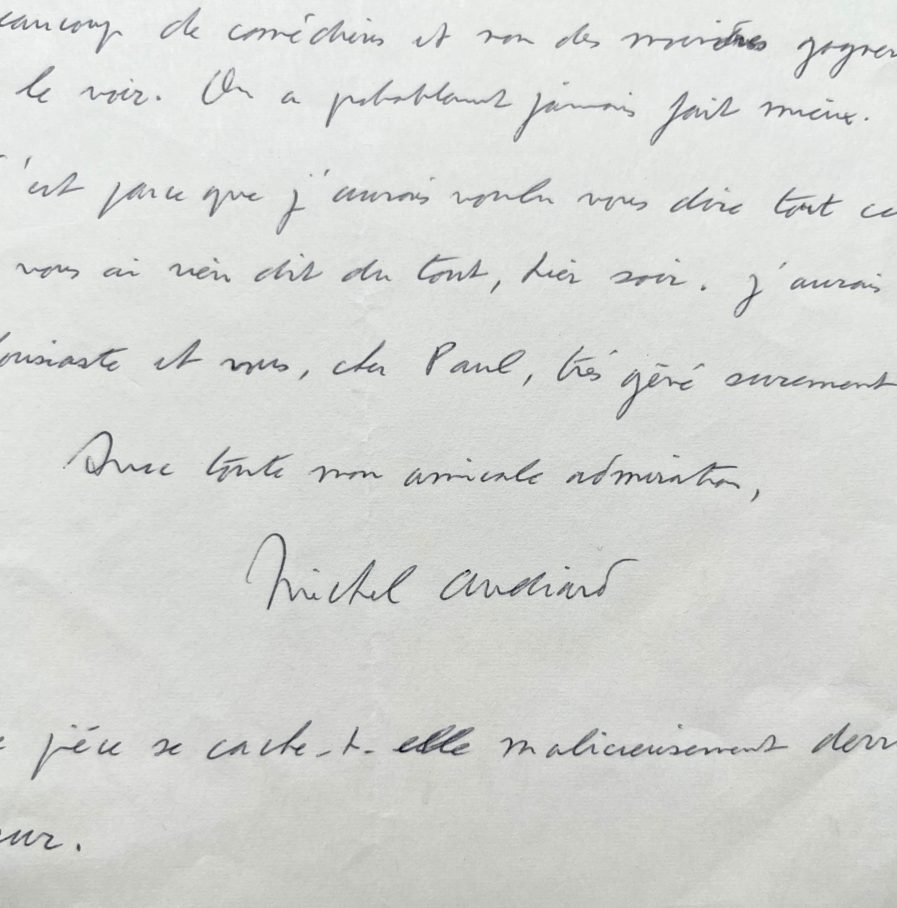 eaucoup de comédiens et non des moindres gagner
le voir. On a probablement jamais fait mieux.
'est parce que j'aurais voulu vous dire tout ce
vous ai rien dit du tout, hier soir. J'aurais
ousiaste et vous, cher Paul, très gêné surement
Avec toute mon amicale admiration,
Michel Audiard
pièce se cache-t-elle malicieusement derr
eur.